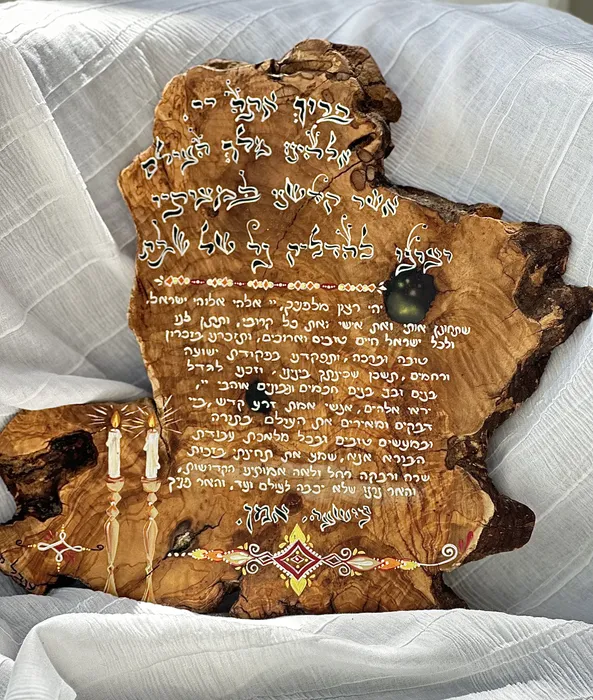 ברוך אתה יי
אלהינו מלך העולם
אשר קדשנו במצותיו
וצונו להדליק נר של שבת
יהי רצון מלפניך, יי אלהי אלוהי ישראל,
שתחונן אותי ואת אישי ואת כל קרובי, ותתן לנו
ולכל ישראל חיים טובים וארוכים, ותזכרנו בזכרון
טובה וברכה, ותפקדנו בפקודת ישועה
ורחמים, ותשכן שכינתך בינינו, וזכנו לגדל
בנים ובני בנים חכמים ונבונים אוהבי יי,
יראי אלהים, אנשי אמת זרע קדש, ביי
דבקים ומאירים את העולם בתורה
ובמעשים טובים ובכל מלאכת עבודת
הבורא אנא, שמע את תחינתי בזכות
שרה ורבקה רחל ולאה אמותינו הקדושות,
והאר נרנו שלא יכבה לעולם ועד, והאר פניך
ונושעה. אמן.